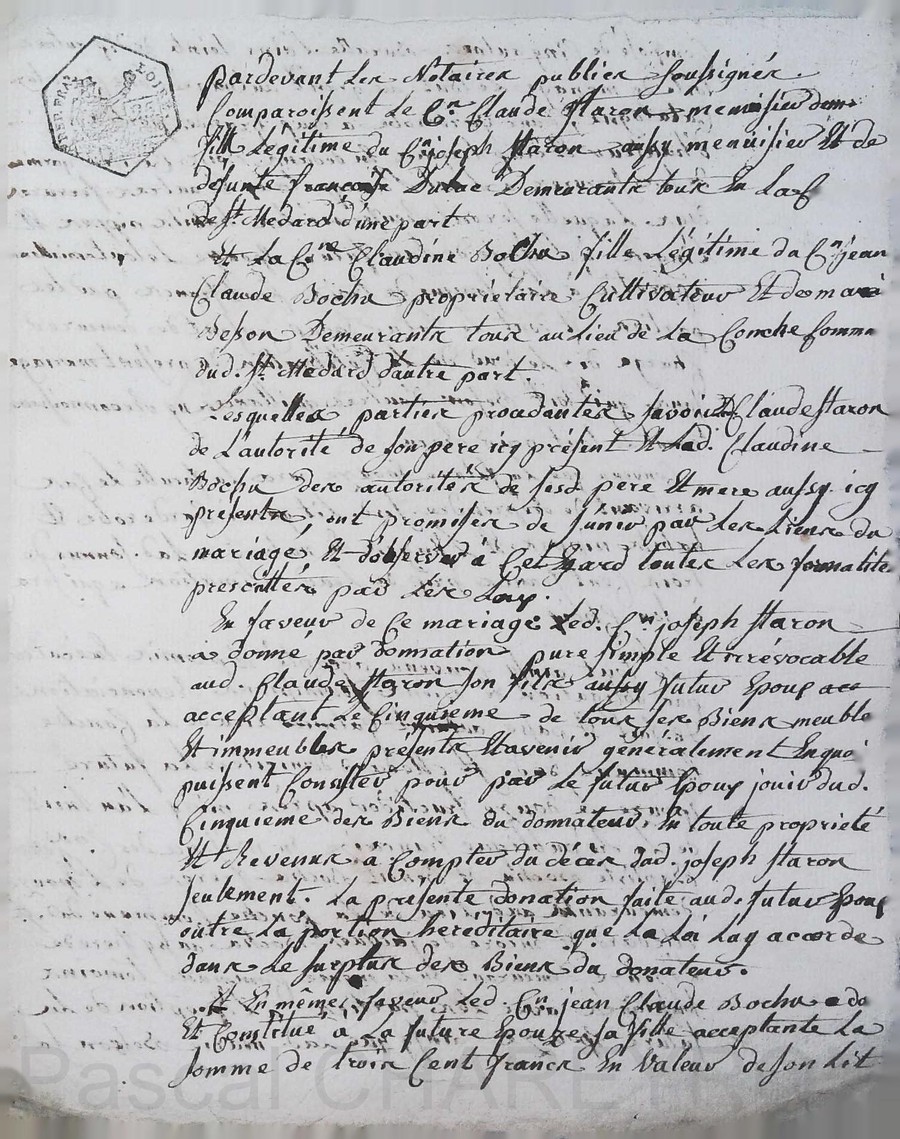 pardevant Les Notaires publics soussignés.
Comparoissent Le Cn. Claude Staron menuisier dem
fils Légitime du Cn. joseph Staron aussy menuisier Et de
défunte françoise Dulac Demeurants tous En La C
de St. Medard d'une part
Et La Cne. Claudine Bochu fille Légitime du Cn. jean
Claude Bochu propriétaire Cultivateur Et de marie
Besson Demeurants tous au Lieu de La Conche Comme
dud. St. Medard d'autre part.
Lesquelles parties procedantes savoir Claude Staron
de L'autorité de son pere icy présent Et Lad. Claudine
Bochu des autorités de sesd. pere Et mere aussy icy
présents, ont promises de S'unir par Les Liens du
mariage, Et d'observer à Cet Egard toutes Les formalité
prescrittes par Les Loix.
En faveur de Ce mariage Led. Cn. joseph Staron
a donné par donnation pure simple Et irrévocable
aud. Claude Staron son fils aussy futur Epoux
acceptant Le Cinquieme de tous ses Biens meuble
Et immeubles présents Et avenir généralement En quoi
puissent Consister pour par Le futur Epoux jouir dud.
Cinquieme des Biens du donnateur, En toute proprieté
Et Revenus à Compter du décès dud. joseph Staron
seulement. La présente donation faite aud. futur Epoux
outre La portion hereditaire que La Loi Luy accorde
dans Le surplus des Biens du donateur.
Et En même faveur Led. Cn. jean Claude Bochu a do
Et Constitué à La future Epouze sa fille acceptante La
somme de trois Cent francs En valeur de son Lit
Pascal CHARE